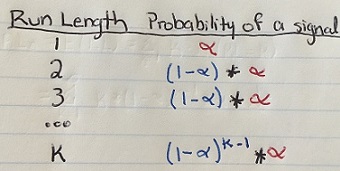 Run Length Probability of a signal
1 α
2 (1-α) * α
3 (1-α) * α
...
K (1-α)^K-1 *α